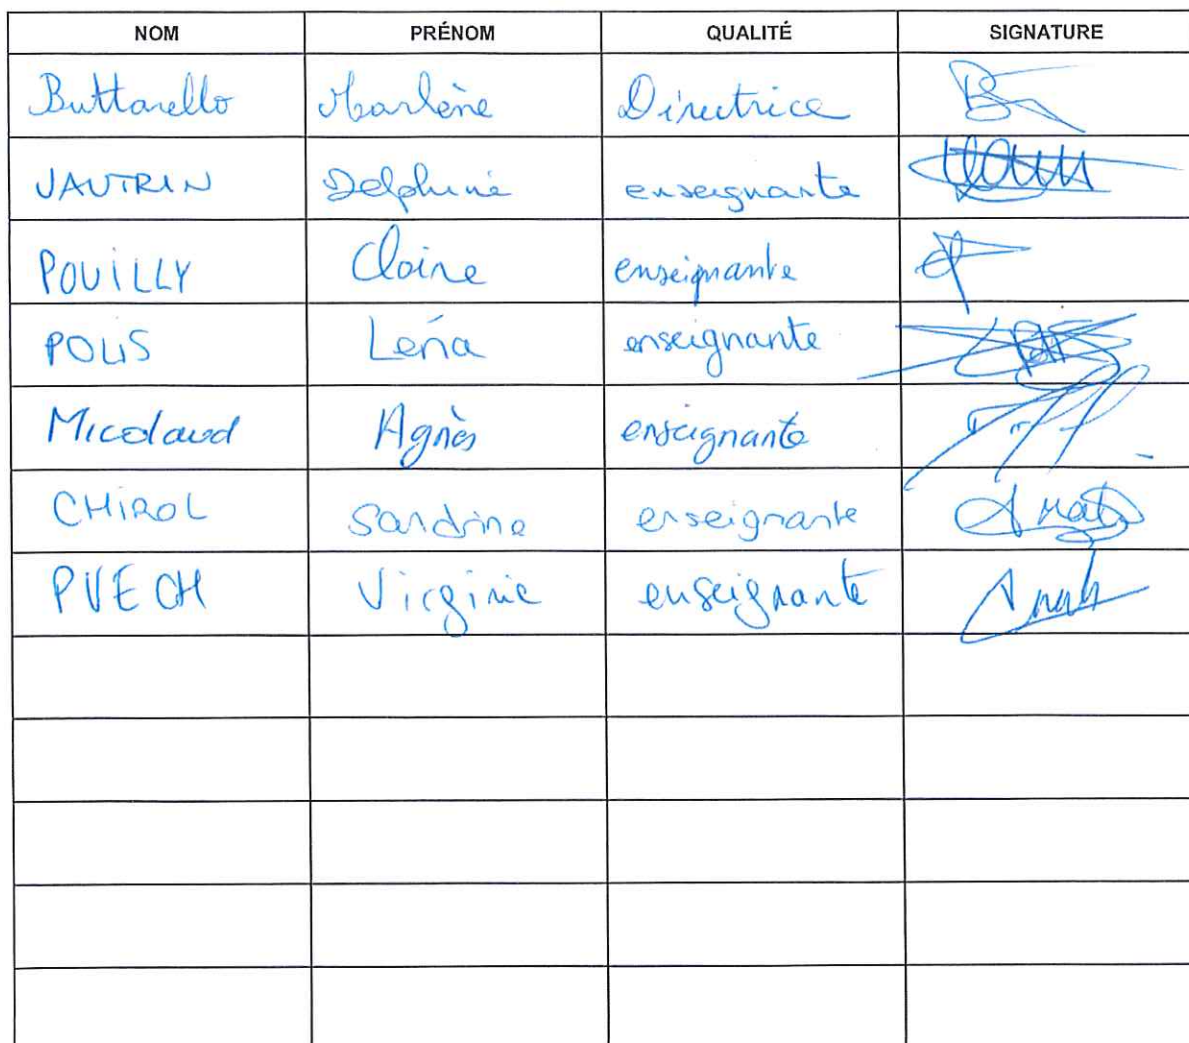 NOM PRÉNOM QUALITÉ SIGNATURE
Buttarello Marlène Directrice
VAUTRIN Delphine enseignante
POUILLY Claire enseignante
POLIS Léna enseignante
Micolaud Agnès enseignante
CHIROL Sandrine enseignante
PUECH Virginie enseignante